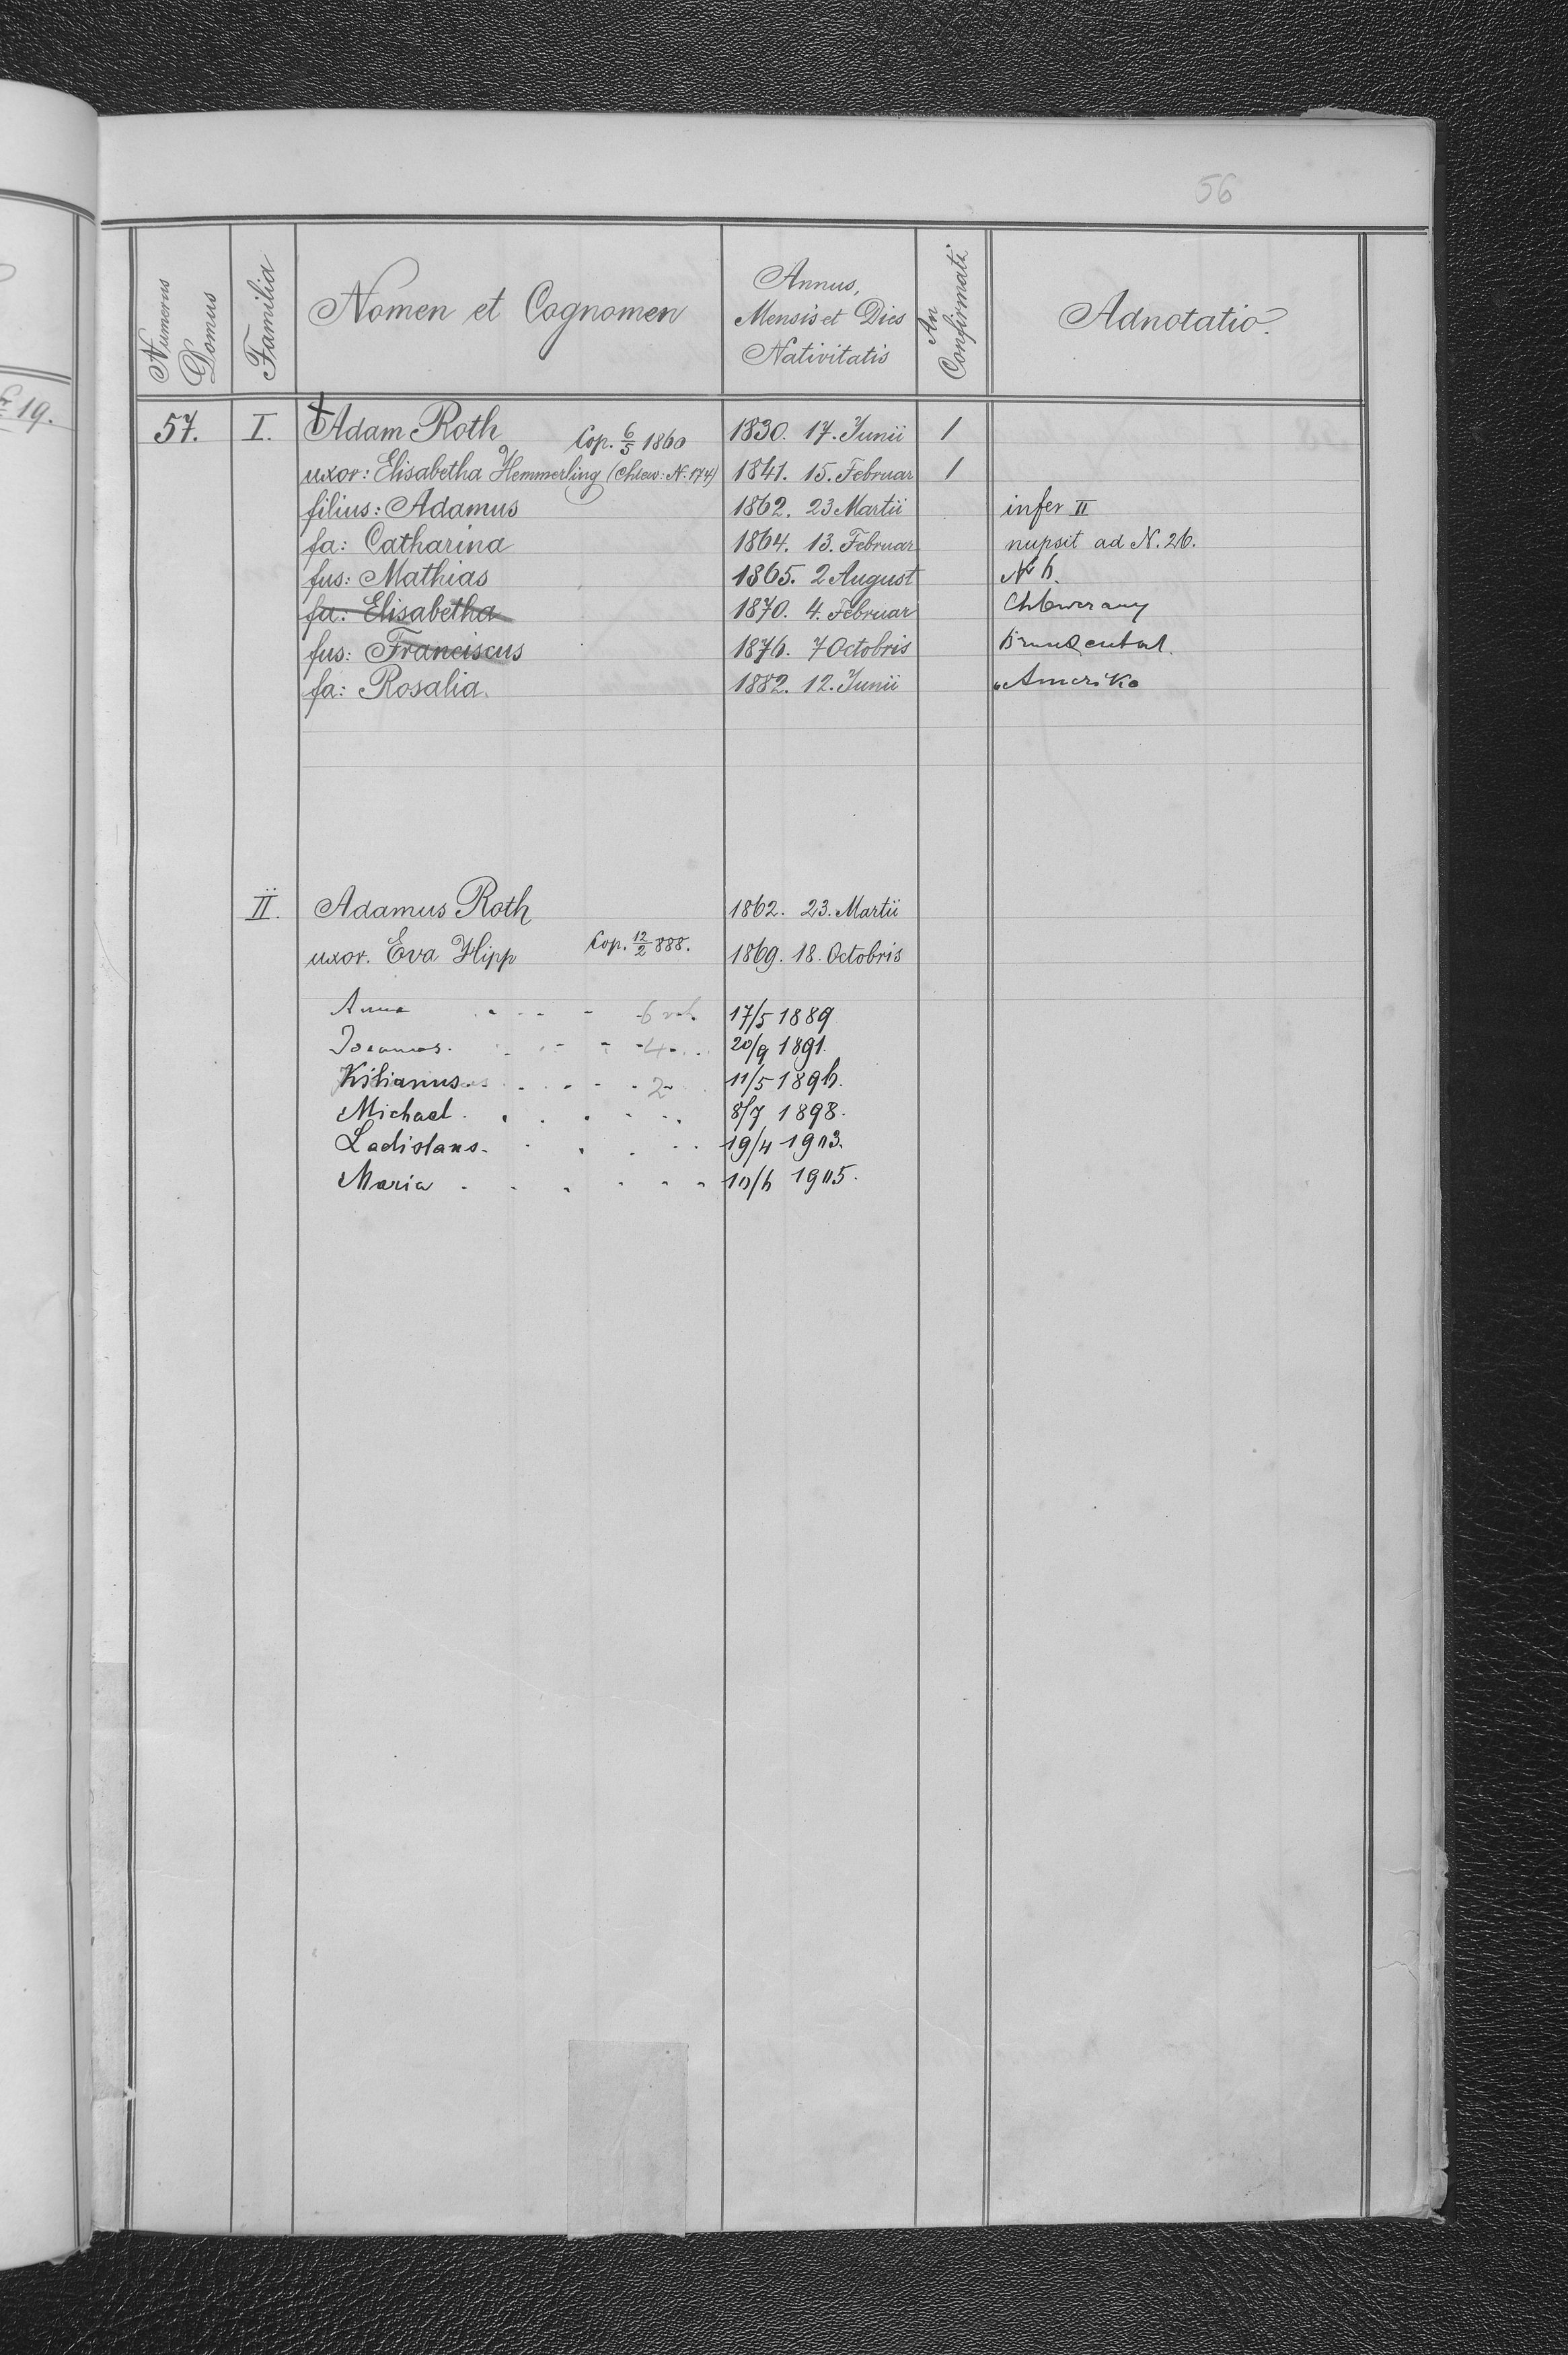 56
Numerus Domus
Familia
Nomen et Cognomen
Annus, Mensis et Dies Nativitatis
An Confirmati
Adnotatio.
19.
57. I. Adam Roth Cop. 6/5 1860 1830. 17. Junii 1
uxor: Elisabetha Hemmerling (Chlew: N. 174) 1841. 15. Februar 1
filius: Adamus 1862. 23 Martii infer II
fa: Catharina 1864. 13. Februar nupsit ad N. 26.
fus: Mathias 1865. 2 August N 6.
fa: Elisabetha 1870. 4. Februar Chlewczany
fus: Franciscus 1876. 7 Octobris
fa: Rosalia. 1882. 12. Junii Amerika
II. Adamus Roth 1862. 23. Martii
uxor. Eva Hipp Cop. 12/2 888. 1869. 18. Octobris
Anna 17/5 1889
Joannes. 4 20/9 1891.
Kilianus 2 11/5 1896.
Michael 8/7 1898.
Ladislaus. 19/4 1903.
Maria 10/6 1905.